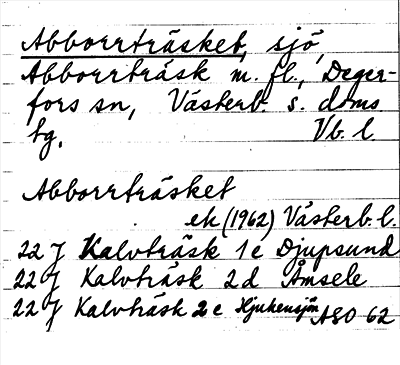 Abborrträsket, sjö,
Abborrträsk m. fl., Deger-
fors sn, Västerb. s. doms
tg. Vb. l.
Abborrträsket
ek (1962) Västerb. l.
22 J Kalvträsk 1e Djupsund
22 J Kalvträsk 2d Åmsele
22 J Kalvträsk 2e Hjukensjön
ASO 62